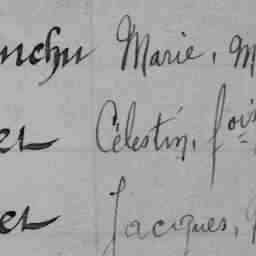 nchu Marie, M
et Célestin, fois
et Jacques,